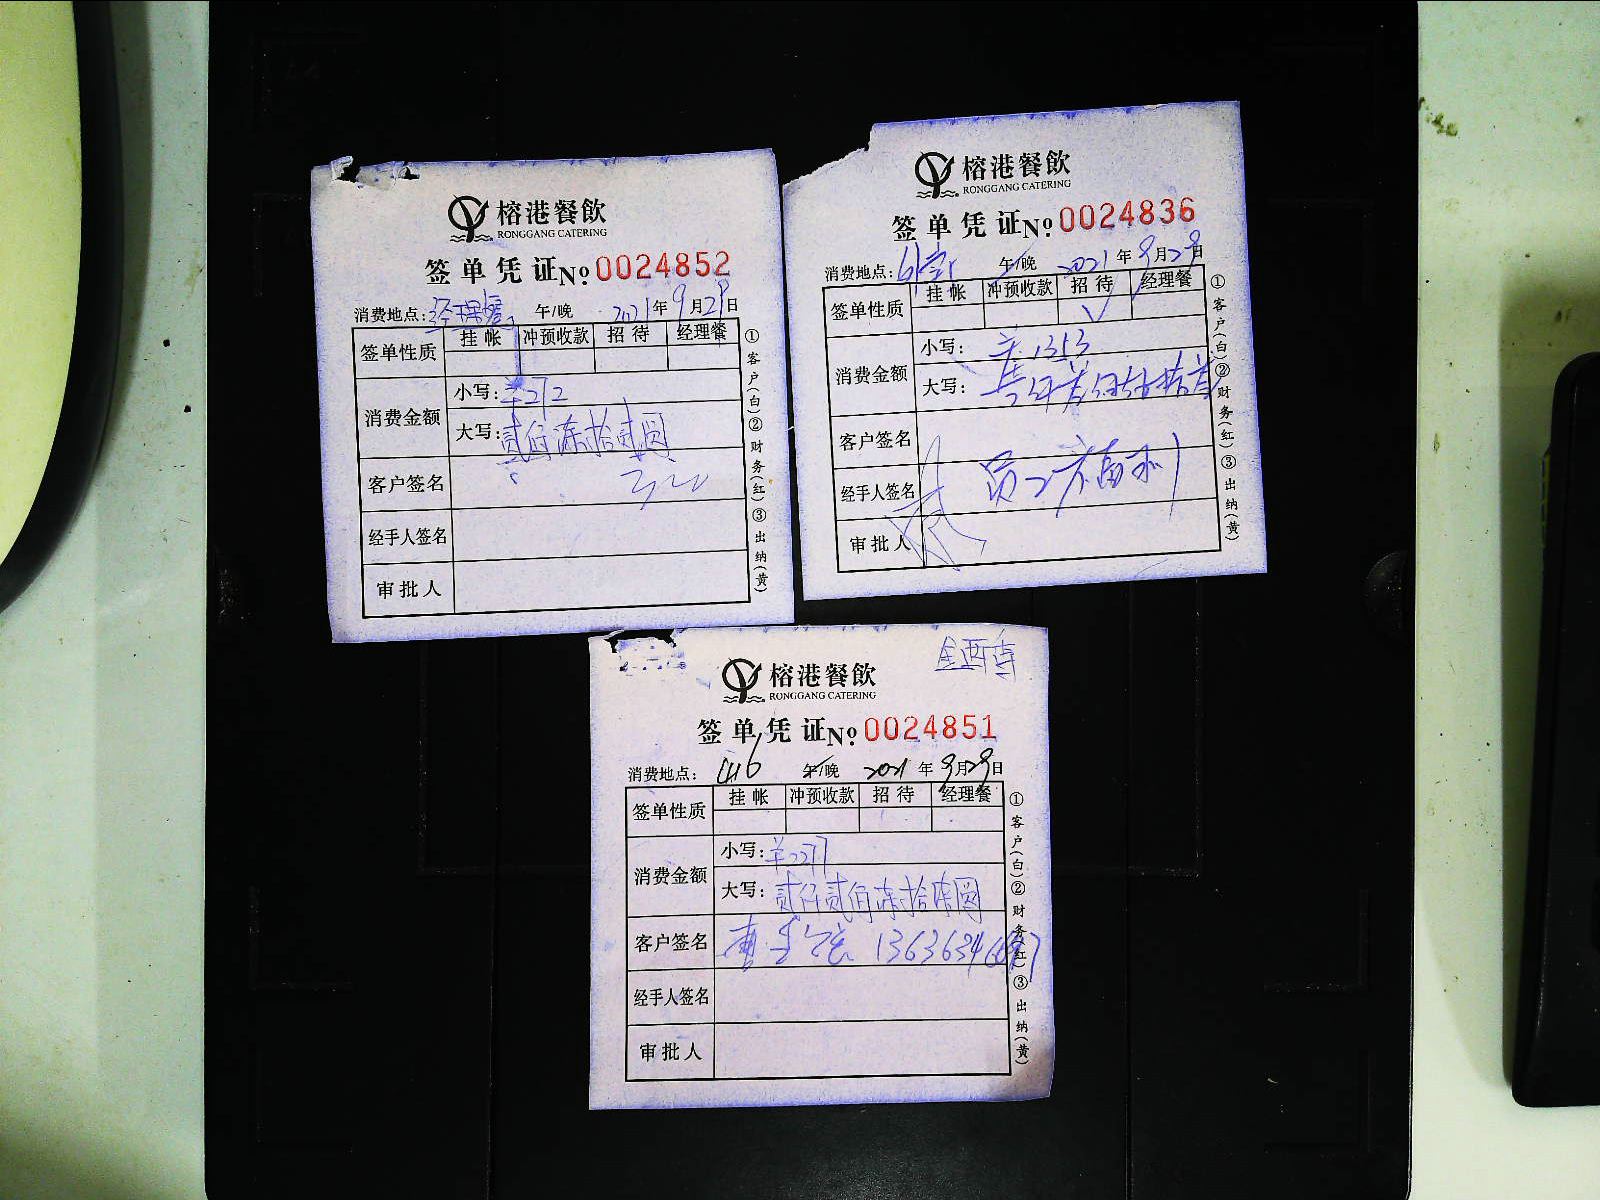 榕港餐飲
RONGGANG CATERING
签单凭证 № 0024852
消费地点: 经理餐 午/晚 2021年9月29日
签单性质 挂帐 冲预收款 招待 经理餐
消费金额
小写: 羊272
大写: 贰佰柒拾贰圆
客户签名
经手人签名
审批人
①客户(白)②财务(红)③出纳(黄)
榕港餐飲
RONGGANG CATERING
签单凭证 № 0024836
消费地点: 午/晚 2021年9月29日
签单性质 挂帐 冲预收款 招待 经理餐
√
消费金额
小写: 羊1313
大写: 壹仟叁佰
客户签名
经手人签名
审批人
①客户(白)②财务(红)③出纳(黄)
榕港餐飲
RONGGANG CATERING
签单凭证 № 0024851
消费地点: 午/晚 2021年9月29日
签单性质 挂帐 冲预收款 招待 经理餐
消费金额
小写: 羊2277
大写: 贰仟贰佰柒拾柒圆
客户签名
经手人签名
审批人
①客户(白)②财务(红)③出纳(黄)